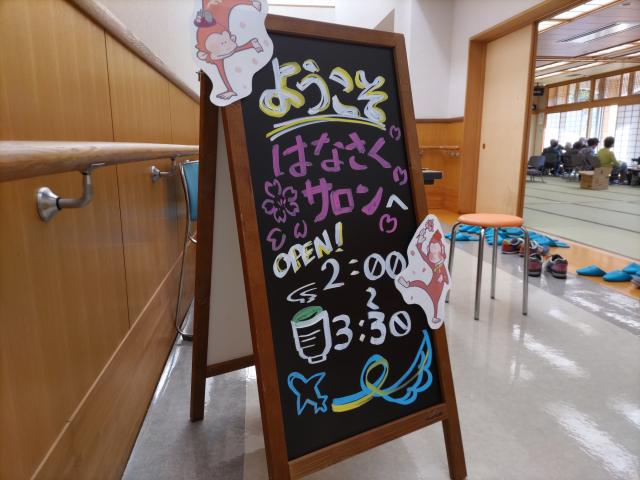 ようこそ
はなさく
サロンへ
OPEN!
2:00
〜
3:30